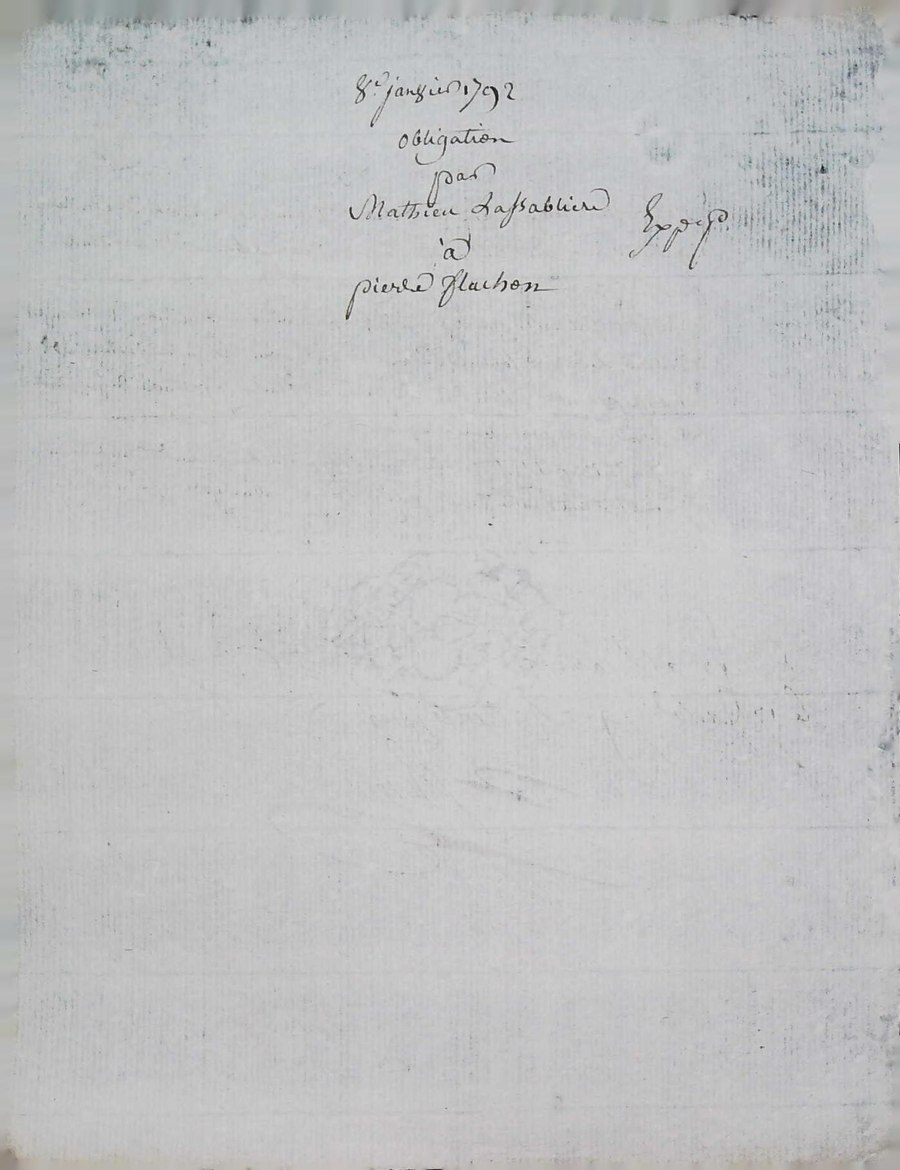 8e. janvier 1792
obligation
par
Mathieu Lassabliere
à
pierre flachon